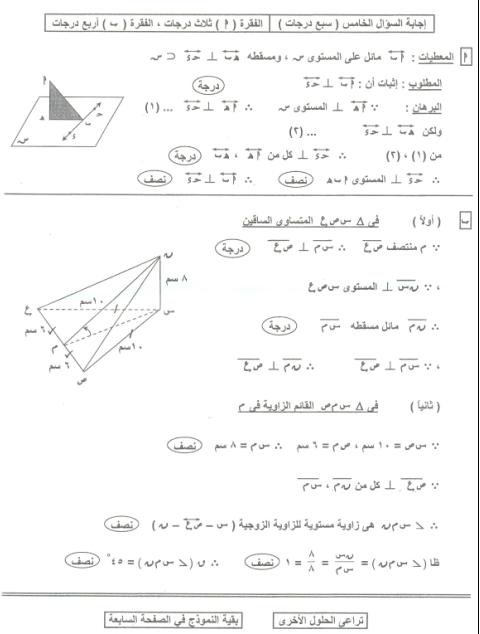 إجابة السؤال الخامس ( سبع درجات ) ، الفقرة ( أ ) ثلاث درجات ، الفقرة ( ب ) أربع درجات
أ المعطيات : أب مائل على المستوى س ، ومسقطه هـب ⊥ حـء ⊂ س
المطلوب : إثبات أن : أب ⊥ حـء درجة
البرهان : ∵ أهـ ⊥ المستوى س ∴ أهـ ⊥ حـء ... (١)
ولكن هـب ⊥ حـء ... (٢)
من (١) ، (٢) ∴ حـء ⊥ كل من أهـ ، هـب درجة
∴ حـء ⊥ المستوى أب هـ نصف ∴ أب ⊥ حـء نصف
أ
هـ
ب
حـ
ء
س
ب ( أولاً ) فى Δ س ص ع المتساوى الساقين
∵ م منتصف ص ع ∴ س م ⊥ ص ع درجة
، ∵ ن س ⊥ المستوى س ص ع
∴ ن م مائل مسقطه س م درجة
، ∵ س م ⊥ ص ع ∴ ن م ⊥ ص ع
( ثانياً ) فى Δ س م ص القائم الزاوية فى م
∵ س ص = ١٠ سم ، ص م = ٦ سم ∴ س م = ٨ سم نصف
∵ ص ع ⊥ كل من ن م ، س م
∴ ∠ س م ن هى زاوية مستوية للزاوية الزوجية ( س – ص ع – ن ) نصف
ظا (∠ س م ن) = ن س / س م = ٨ / ٨ = ١ نصف ∴ ن (∠ س م ن) = ٤٥° نصف
ن
٨ سم
١٠سم
س
ع
٦ سم
م
١٠سم
٦ سم
ص
تراعى الحلول الأخرى
بقية النموذج في الصفحة السابعة